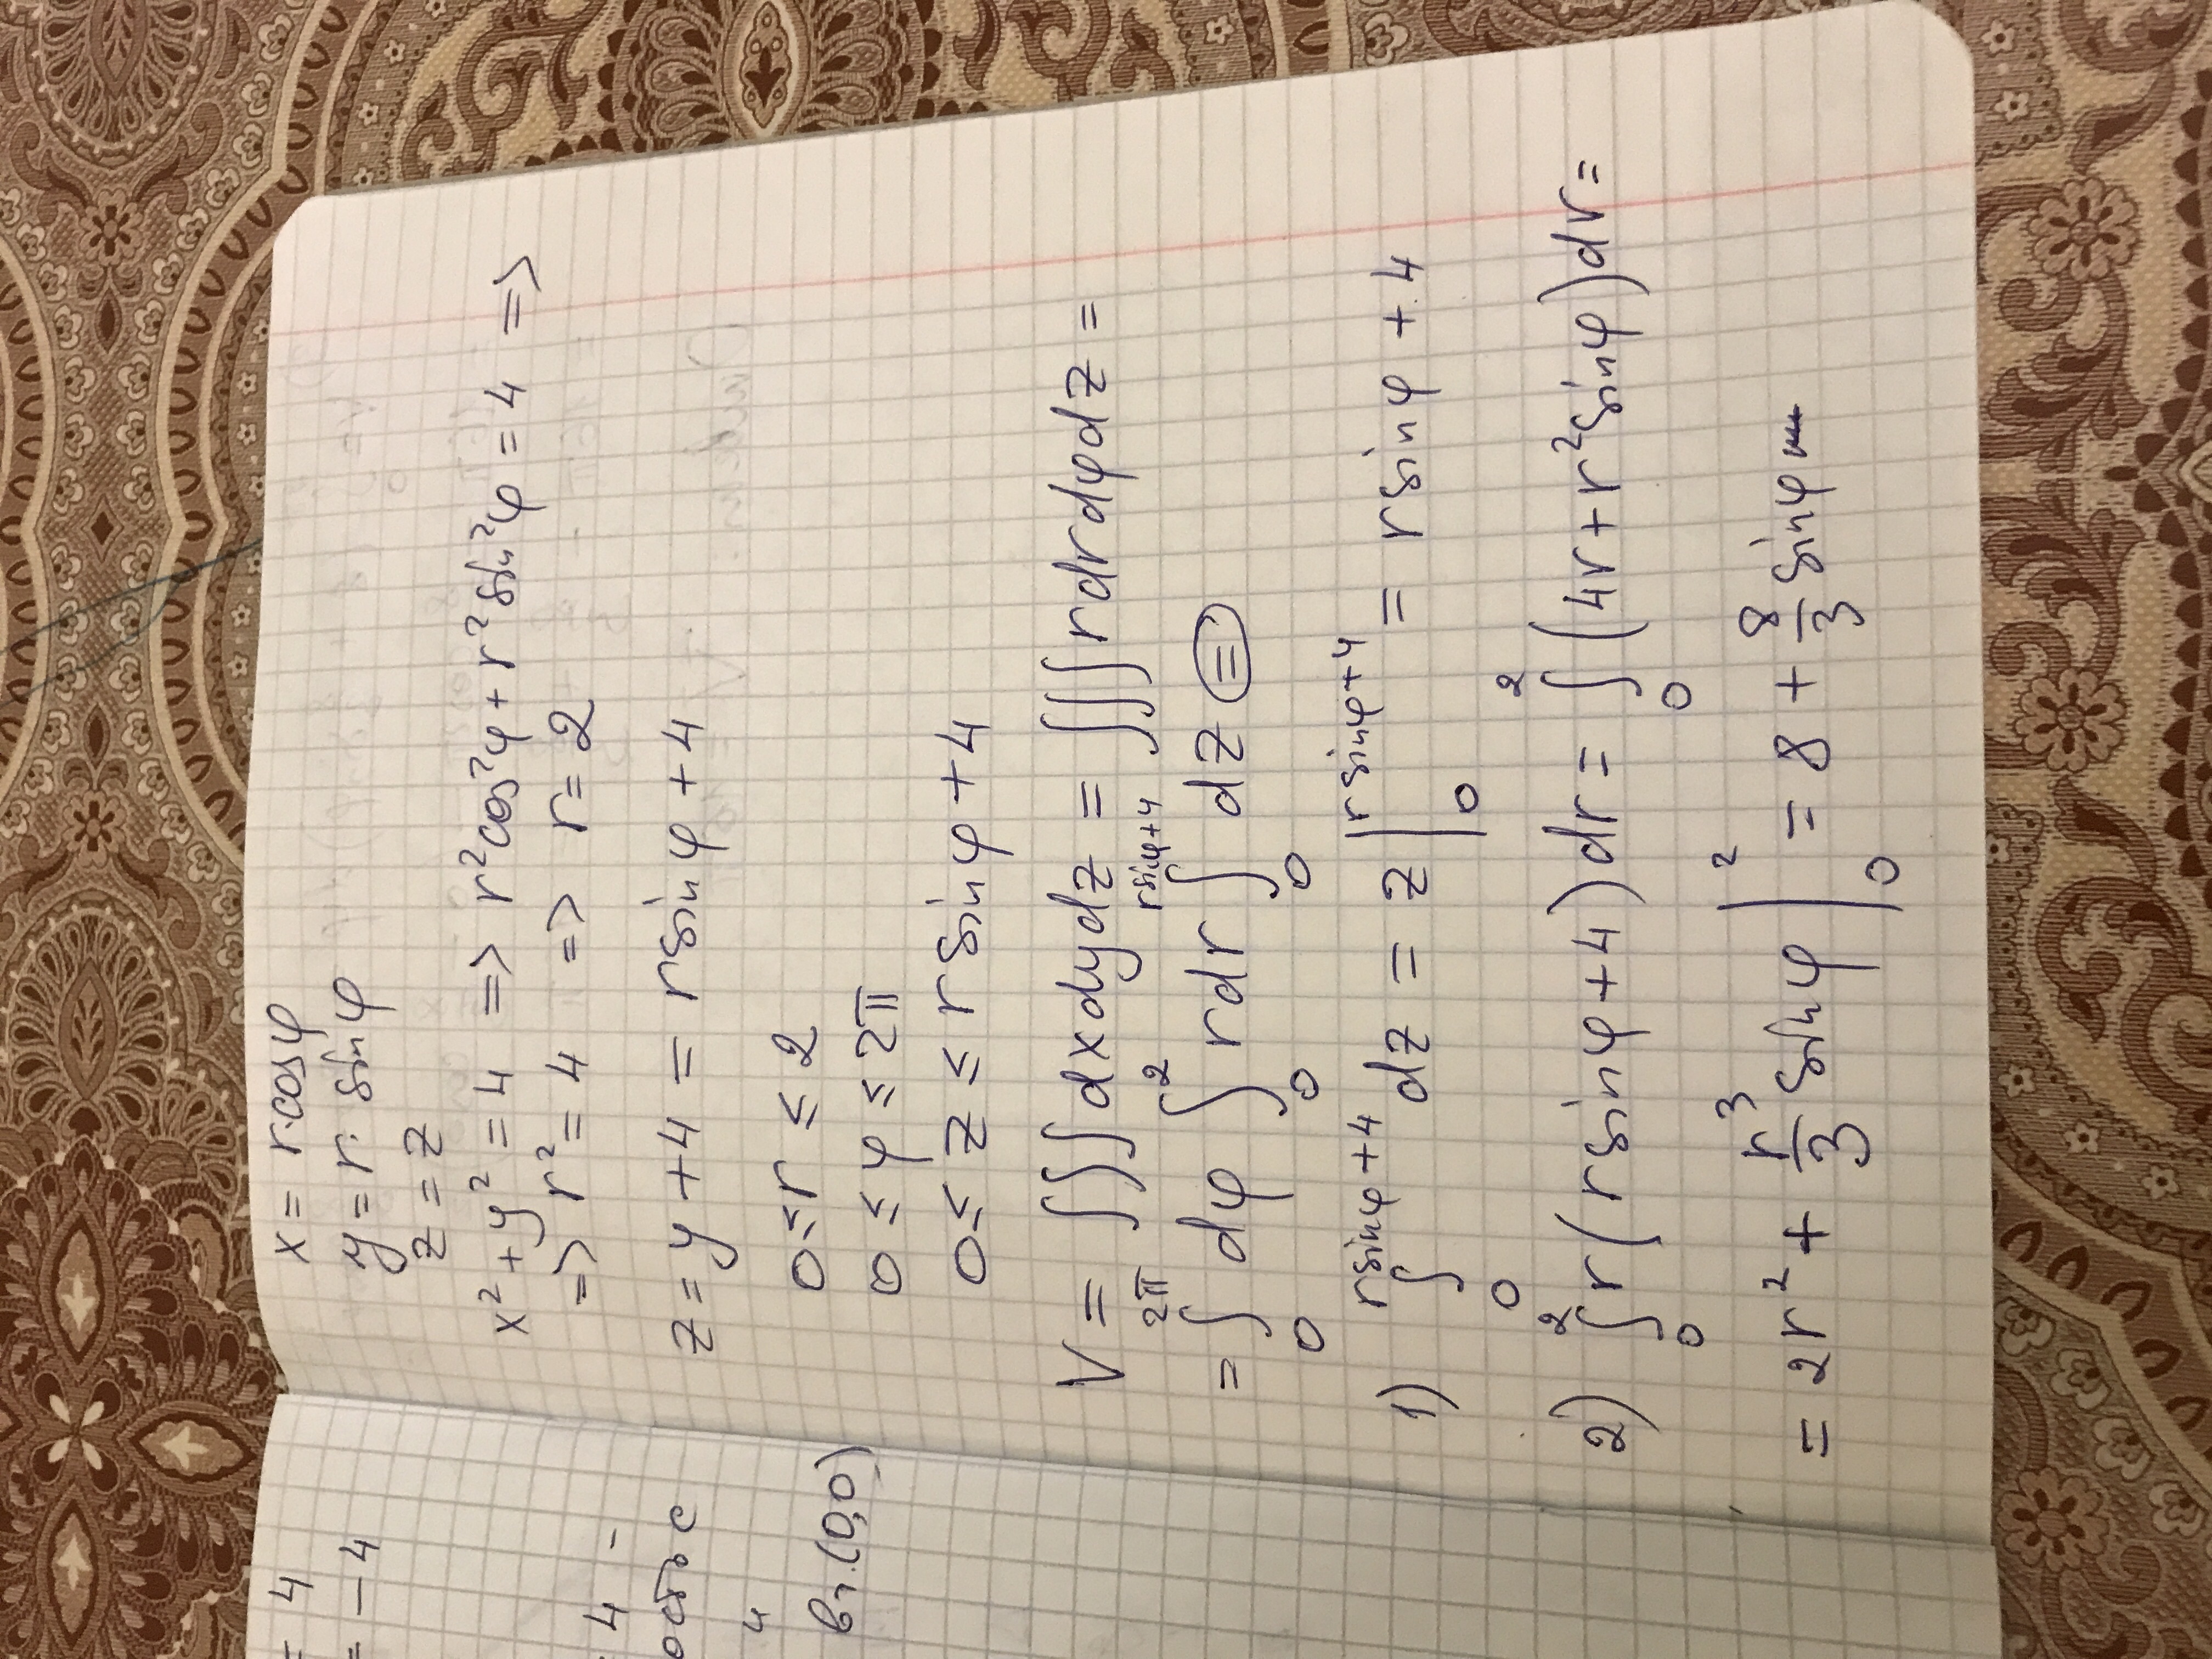 = 4
= - 4
4 -
ость с
4
в т. (0,0)
x = r·cosφ
y = r·sinφ
z = z
x² + y² = 4 => r²cos²φ + r²sin²φ = 4 =>
=> r² = 4 => r = 2
z = y + 4 = r sinφ + 4
0 ≤ r ≤ 2
0 ≤ φ ≤ 2π
0 ≤ z ≤ r sinφ + 4
V = ∭ dxdydz = ∭ r dr dφ dz =
= ∫₀^{2π} dφ ∫₀^{2} r dr ∫₀^{r sinφ+4} dz (=)
1) ∫₀^{r sinφ+4} dz = z |₀^{r sinφ+4} = r sinφ + 4
2) ∫₀^{2} r(r sinφ + 4)dr = ∫₀^{2} (4r + r² sinφ)dr =
= 2r² + r³/3 sinφ |₀^{2} = 8 + 8/3 sinφ